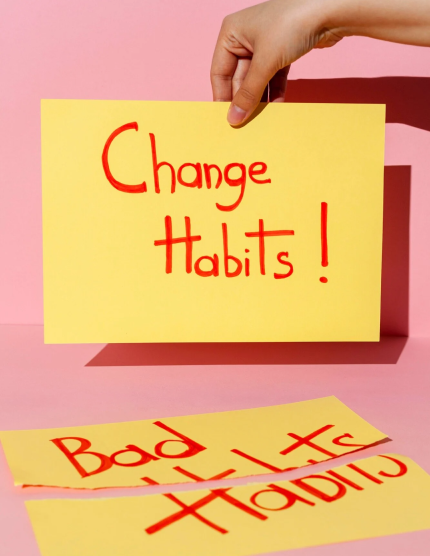 Change
Habits!
Bad
Habits